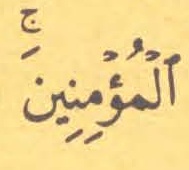 ٱلْمُؤْمِنِينَ ۚ